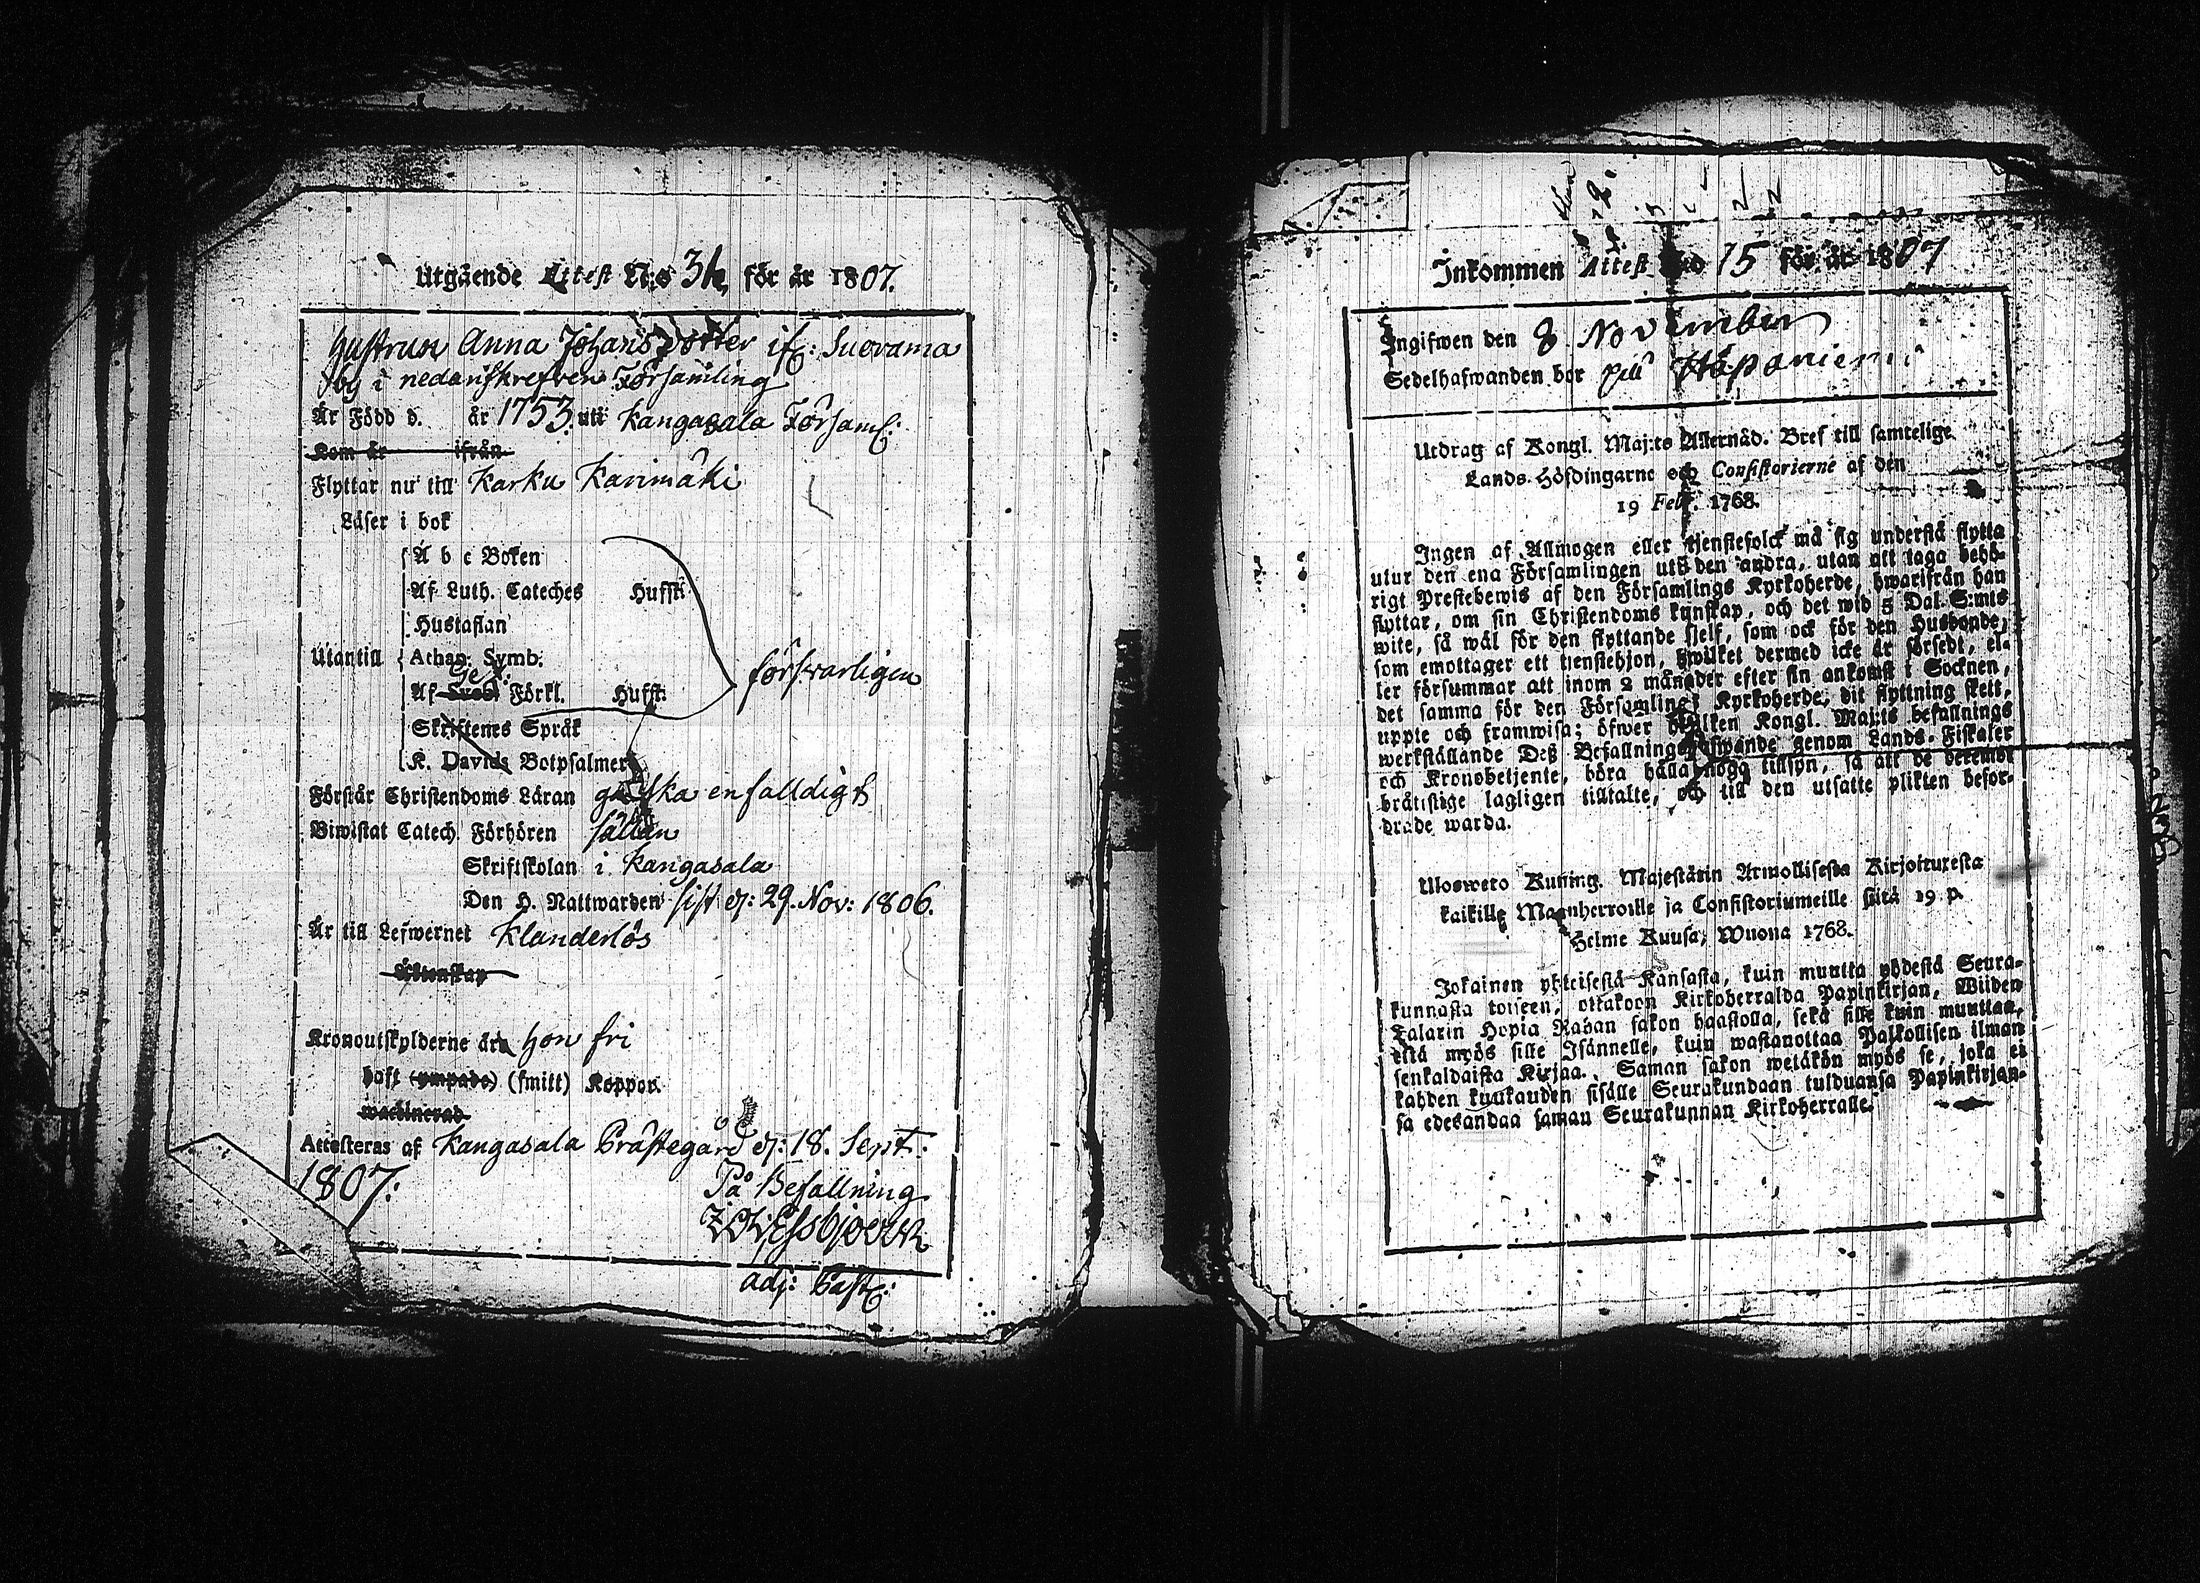 Utgående Attest N:o 34, för år 1807.
Hustrun Anna Johansdotter if: Suorama
by i nedanskrefven Församling
Är Född d. år 1753. uti Kangasala Församl:
Kom år ifrån
Flyttar nu till Karku Karimäki
Läser i bok
A b c Boken
Af Luth. Cateches Husst:
Hustaflan
Utantill Athan. Symb.
Af Sveb. Förkl. Husst:
försvarligen
Skriftenes Språk
K. Davids Botpsalmer
Förstår Christendoms Läran ganska enfalldigt
Biwistat Catech. Förhören sällan
Skriftskolan i Kangasala
Den H. Nattwarden sist d: 29. Nov: 1806.
Är till Lefwernet Klanderlös
Äktenskap
Kronoutskylderne är hon fri
haft (ympade) (smitt) Koppor.
waccinerad
Attesteras af Kangasala Prästegård d: 18. Sept:
1807:
På Befallning
adj: Past:
Inkommen Attest N:o 15 för år 1807
Ingifwen den 8 November
Sedelhafwanden bor på Haponiemi
Utdrag af Kongl. Maj:ts Allernåd. Bref till samtelige
Lands-Höfdingarne och Consistorierne af den
19 Febr. 1768.
Ingen af Allmogen eller tjenstefolck må sig understå flytta
utur den ena Församlingen uti den andra, utan att taga behö-
rigt Prestebewis af den Församlings Kyrkoherde, hwarifrån han
flyttar, om sin Christendoms kunskap, och det wid 5 Dal. S:mts
wite, så wäl för den flyttande sjelf, som ock för den Husbonde,
som emottager ett tjenstehjon, hwilket dermed icke är försedt, el-
ler försummar att inom 2 månader efter sin ankomst i Socknen,
det samma för den Församlings Kyrkoherde, dit flyttning skett,
uppte och framwisa; öfwer hwilken Kongl. Maj:ts befallnings
werkställande Deß Befallningshafwande genom Lands-Fiskaler
och Kronobetjente, böra hålla noga tillsyn, så att de deremot
bråtistige lagligen tilltalte, och till den utsatte plikten befor-
drade warda.
Uloswero Kuning. Majestätin Armollisesta Kirjoituxesta
kaikille Maanherroille ja Consistoriumeille siitä 19 p.
Helme Kuusa, Wuona 1768.
Jokainen yhteisestä Kansasta, kuin muutta yhdestä Seura-
kunnasta toiseen, ottakoon Kirkoherralda Papinkirjan, Wiiden
Talarin Hopia Rahan sakon haastolla, sekä sille kuin muuttaa,
että myös sille Isännelle, kuin wastanottaa Palkollisen ilman
senkaldaista Kirjaa. Saman sakon wetäkön myös se, joka ei
kahden kuukauden sisälle Seurakundaan tulduansa Papinkirjan-
sa edesandaa saman Seurakunnan Kirkoherralle.